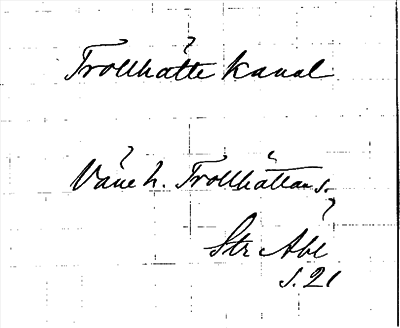 Trollhätte kanal
Väne h. Trollhättans s.
Str Abl
s. 21